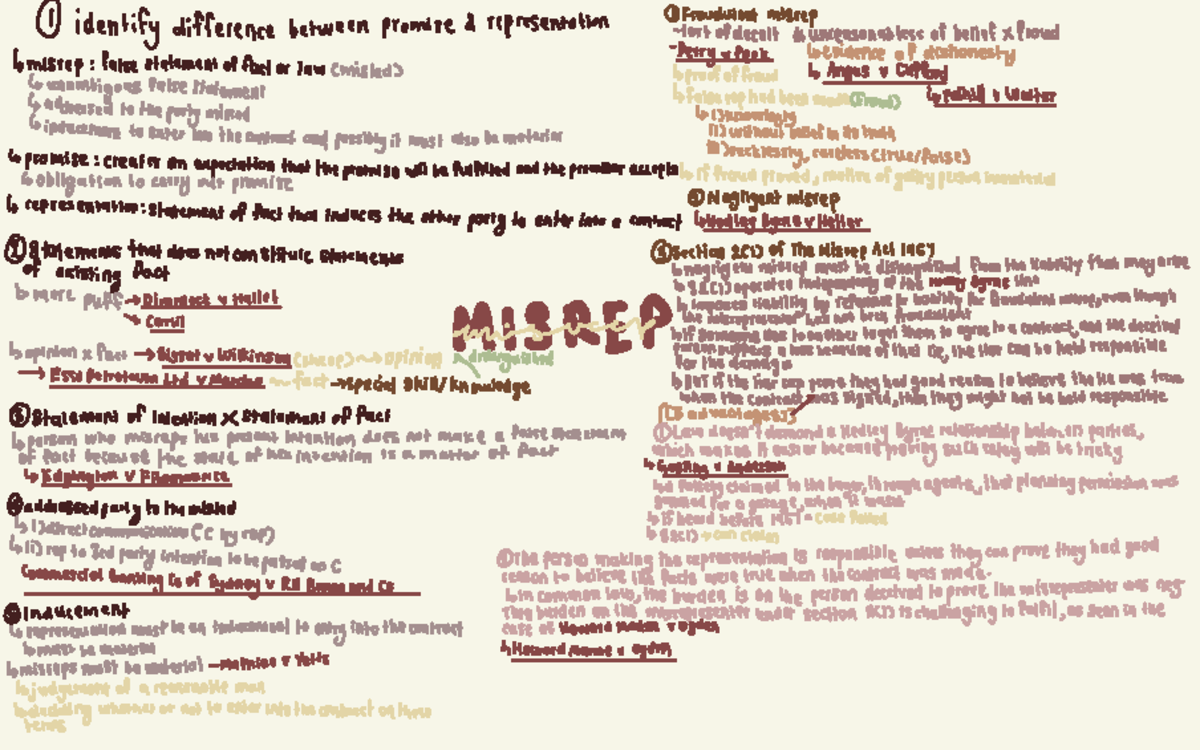 ① identify difference between promise & representation
↳misrep : false statement of fact or law (misled)
↳unambiguous false statement
↳addressed to the party misled
↳inducement to enter into the contract and possibly it must also be material
↳promise : creates an expectation that the promise will be fulfilled and the promisor accepts
↳obligation to carry out promise
↳ representation: statement of fact that induces the other party to enter into a contract
② Statements that does not constitute statements
of existing fact
↳mere puff → Dimmock v Hallet
→ Carlil
↳opinion x fact → Bisset v Wilkinson (sheep) → opinion
→ Esso Petroleum Ltd v Mardon → fact → special skill/knowledge
③ Statement of Intention X statement of fact
↳person who misreps his present intention does not make a false statement
of fact because the state of his intention is a matter of fact
↳ Edgington v Fitzmaurice
④ addressed party to the misled
↳ i) direct communication (C by rep)
↳(ii) rep to 3rd party intention to be passed on C
Commercial Banking Co of Sydney v RH Brown and Co
⑤ Inducement
↳representation must be an inducement to entry into the contract
↳must be material
↳misreps must be material → Mathias v Yetts
↳judgement of a reasonable man
↳deciding whether or not to enter into the contract on those
terms
MISREP
misrep
distinguished
① Fraudulent misrep
-tort of deceit & unreasonableness of belief x fraud
-Derry v Peek ↳evidence of dishonesty
↳proof of fraud ↳ Angus v Clifford
↳false rep had been made (fraud) ↳ Polhill v Walter
↳ i) knowingly
ii) without belief in its truth
iii) recklessly, careless (true/false)
↳ if fraud proved, motive of guilty person immaterial
② Negligent misrep
↳Hedley Byrne v Heller
③ Section 2(1) of The Misrep Act 1967
↳negligent misrep must be distinguished from the liability that may arise
↳ S 2(1) operates independently of the Hedley Byrne line
↳ imposes liability by reference to liability for fraudulent misrep, even though
the misrepresentor had not been fraudulent
↳If someone lies to another to get them to agree to a contract, and the deceived
person suffers a loss because of that lie, the liar can be held responsible
for the damage
↳ But if the liar can prove they had good reason to believe the lie was true
when the contract was signed, then they might not be held responsible
(2 advantages)
① Law doesn't demand a Hedley Byrne relationship between parties,
which makes it easier because proving such a duty will be tricky
↳ Gosling v Anderson
↳a falsely claimed to the buyer, through agents, that planning permission was
granted for a garage, when it wasn't
↳ if heard before 1967 = case failed
↳ S 2(1) → can claim
② The person making the representation is responsible unless they can prove they had good
reason to believe the facts were true when the contract was made.
↳ in common law, the burden is on the person deceived to prove the misrepresenter was neg
↳ The burden on the misrepresenter under section 2(1) is challenging to fulfil, as seen in the
case of Howard Marine v Ogden
↳Howard Marine v Ogden